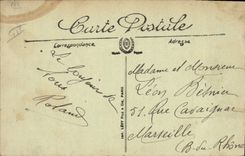 Carte Postale
Correspondance
Adresse
Le bonjour de
Nous
Roland
Madame et Monsieur
Léon Besnier
51, Rue Cavaignac
Marseille
(B. du Rhône)
LÉVY Fils & Cie, PARIS